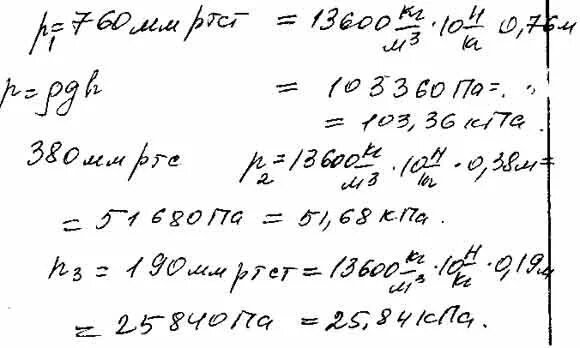 p₁=760ммртст = 13600 кг/м³ · 10 Н/кг 0,76м
p=ρgh = 103360Па=
= 103,36кПа.
380ммртс p₂=13600 кг/м³ · 10 Н/кг · 0,38м=
= 51680Па = 51,68кПа.
p₃ = 190ммртст = 13600 кг/м³ · 10 Н/кг · 0,19м
= 25840Па = 25,84кПа.